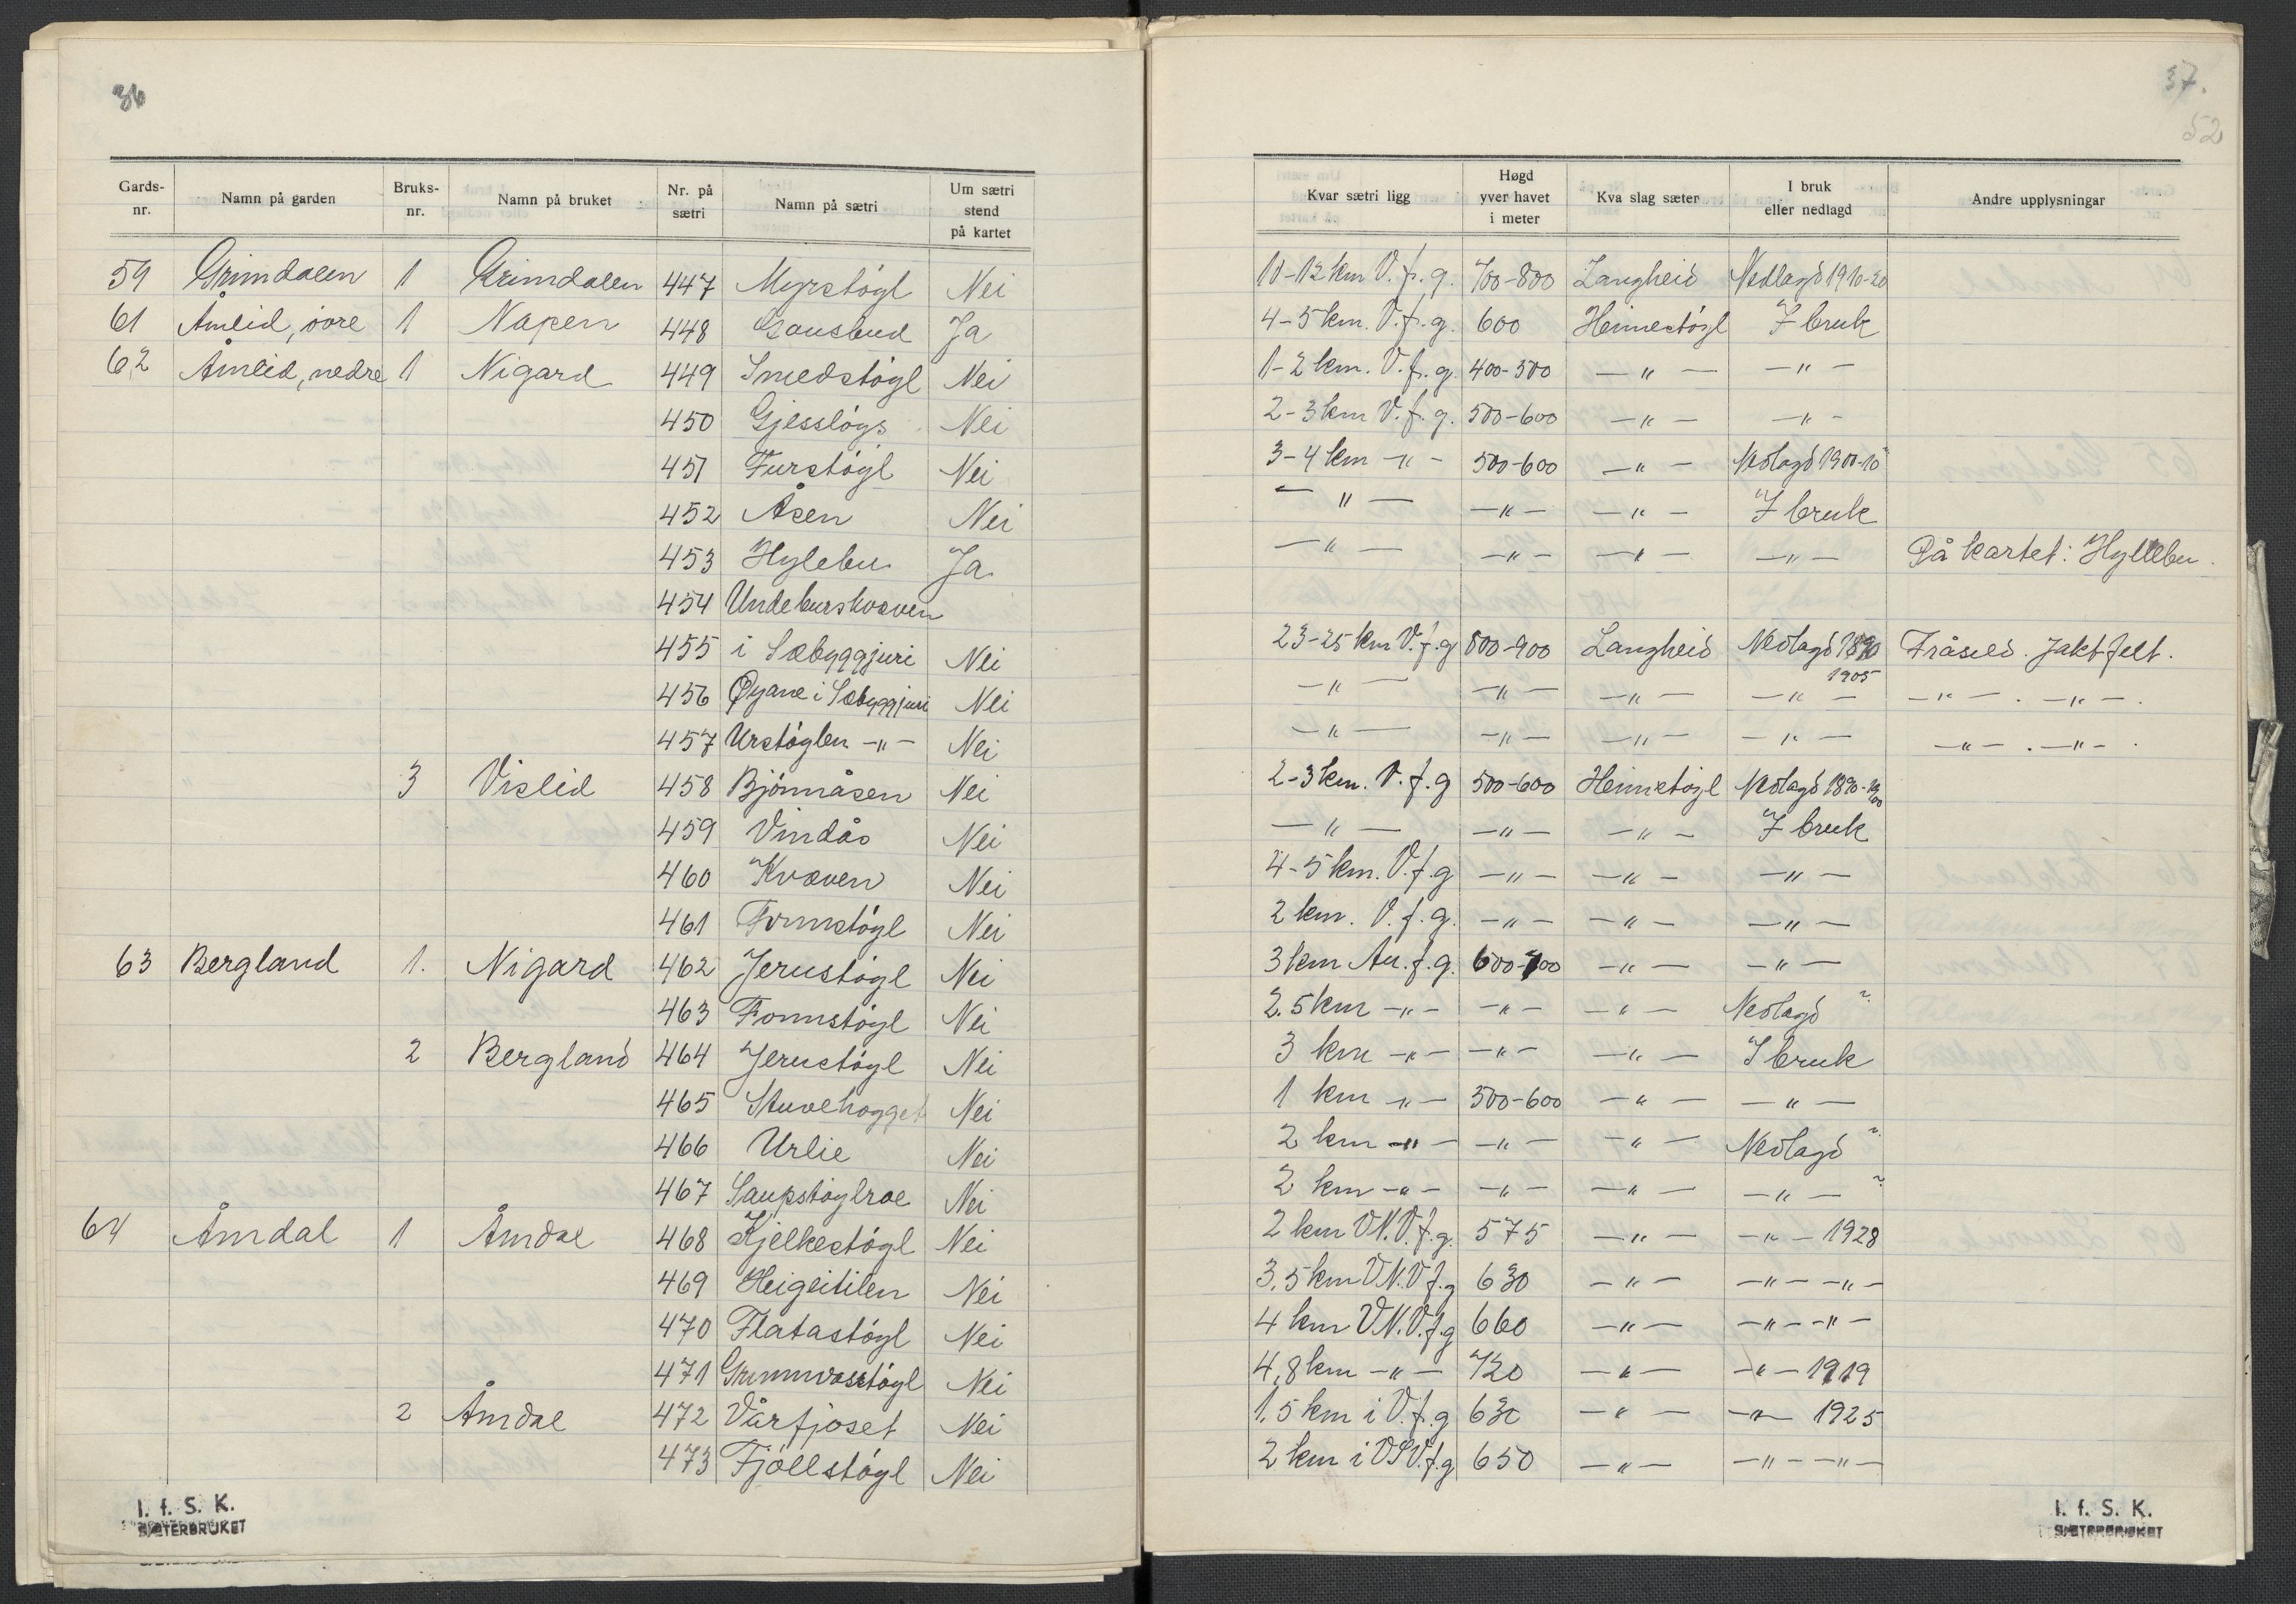 36
Gards-nr. Namn på garden Bruks-nr. Namn på bruket Nr. på sætri Namn på sætri Um sætri stend på kartet
59 Grimdalen 1 Grimdalen 447 Myrstöyl Nei
61 Åmlid,övre 1 Napen 448 Gausbud Ja
62 Åmlid, nedre 1 Nigard 449 Smedstöyl Nei
450 Nei
451 Furstöyl Nei
452 Åsen Nei
453 Hylebu Ja
454 Undeburskvæven
455 i Sæbyggjuri Nei
456 Øyane i Sæbyggjuri Nei
457 Urstöylen -"- Nei
3 Vislid 458 Bjönnåsen Nei
459 Vindås Nei
460 Kvæven Nei
461 Fonnstöyl Nei
63 Bergland 1. Nigard 462 Jerustöyl Nei
463 Fonnstöyl Nei
2 Bergland 464 Jerustöyl Nei
465 Stuvehogget Nei
466 Urlie Nei
467 Saupstöylroe Nei
64 Åmdal 1 Åmdal 468 Kjelkestöyl Nei
469 Heigeitilen Nei
470 Flatastöyl Nei
471 Grunnvasstöyl Nei
2 Åmdal 472 Vårfjoset Nei
473 Fjöllstöyl Nei
I. f. S. K.
SÆTERBRUKET
37.
52
Kvar sætri ligg Høgd yver havet i meter Kva slag sæter I bruk eller nedlagd Andre upplysningar
11-12 km V. f. g. 700-800 Langheid Nedlagd 1910-20
4-5 km. V. f. g. 600 Heimestöyl I bruk
1-2 km. V. f. g. 400-500 -"- -"-
2-3 km V. f. g. 500-600 -"- -"-
3-4 km -"- 500-600 -"- Nedlagd 1900-10
-"- -"- -"- I bruk
-"- -"- -"- -"- På kartet: Hyllebu.
23-25 km V. f. g 800-900 Langheid Nedlagd 1890 Fråseld. Jaktfelt.
1905
-"- -"- -"- -"- -"-. -"-.
-"- -"- -"- -"- -"-. -"-.
2-3 km. V. f. g 500-600 Heimestöyl Nedlagd 1890-1900
-"- -"- -"- I bruk
4-5 km. V. f. g -"- -"- -"-
2 km. V. f. g. -"- -"- -"-
3 km Au. f. g. 600-700 -"- -"-
2.5 km -"- -"- -"- Nedlagd ?
3 km -"- -"- -"- I bruk
1 km -"- 500-600 -"- -"-
2 km -"- -"- -"- Nedlagd ?
2 km -"- -"- -"- -"- ?
2 km V.N.V. f. g. 575 -"- -"- 1928
3,5 km V.N.V. f. g 630 -"- -"- -"-
4 km V.N.V. f. g 660 -"- -"- -"-
4,8 km -"- 720 -"- -"- 1919
1,5 km i V. f. g 630 -"- -"- 1925
2 km i VSV. f. g 650 -"- -"- -"-
I. f. S. K.
SÆTERBRUKET